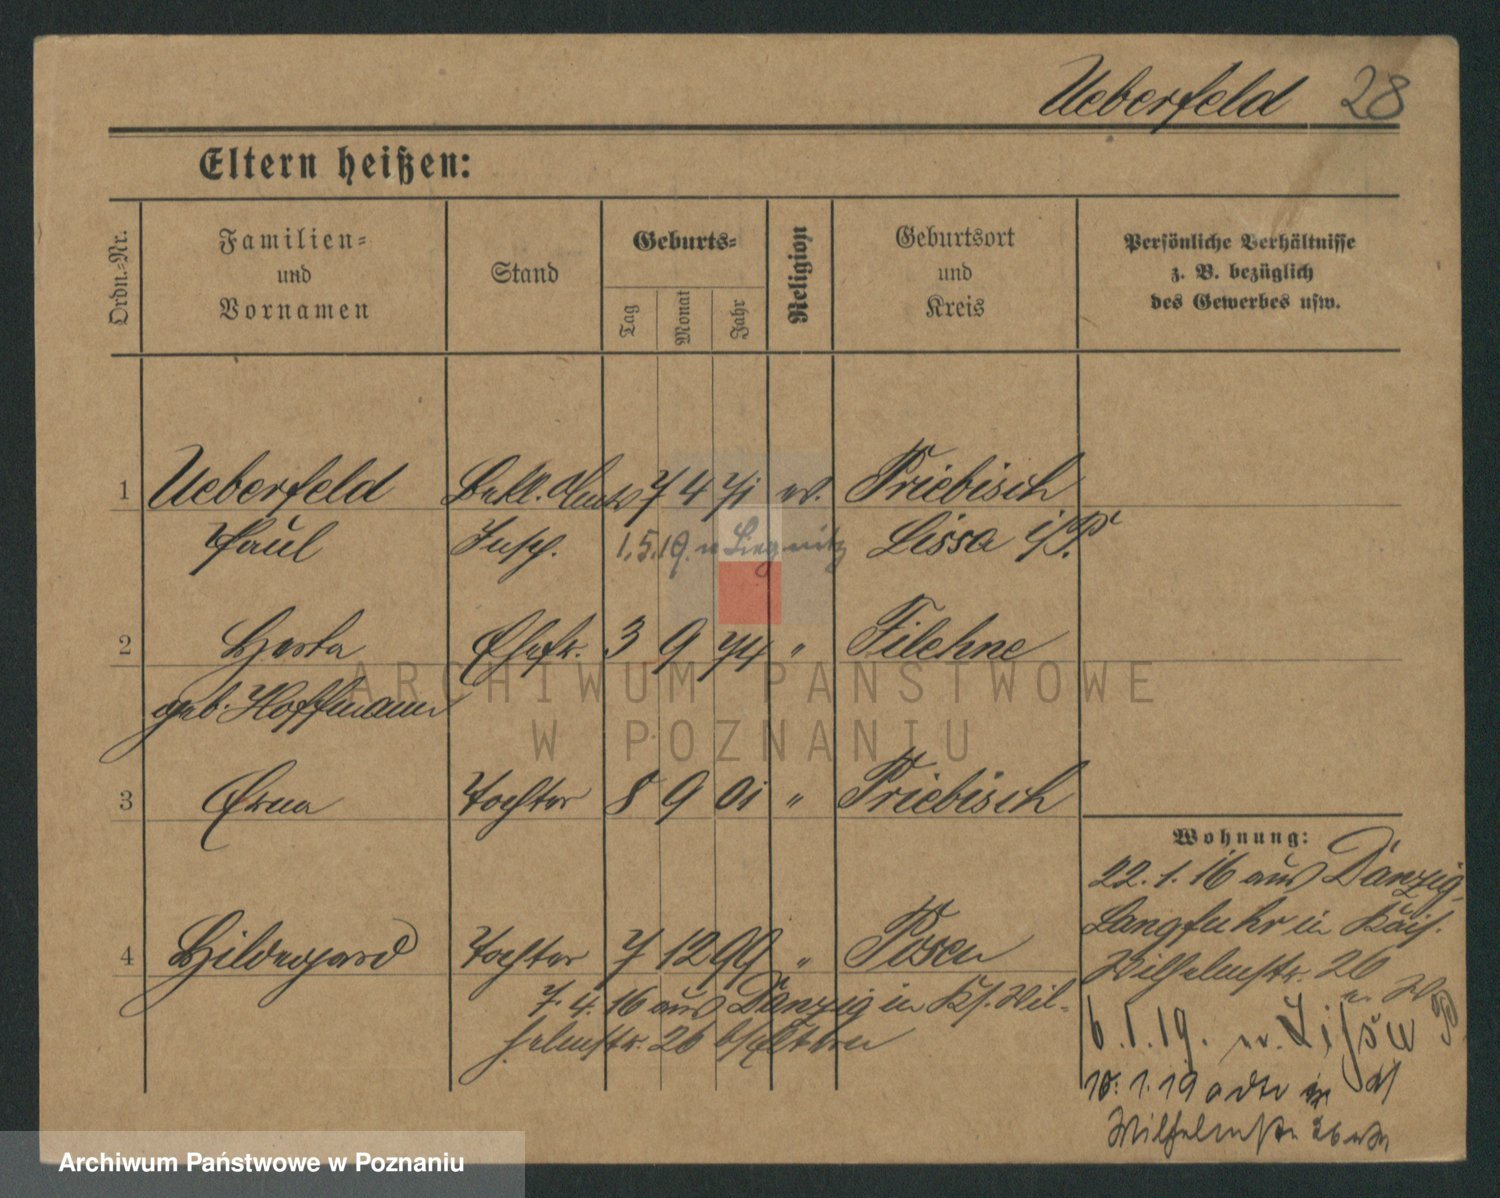 Ueberfeld 28
Eltern heißen:
Ordn.-Nr.
Familien-
und
Vornamen
Stand
Geburts-
Tag
Monat
Jahr
Religion
Geburtsort
und
Kreis
Persönliche Verhältnisse
z. B. bezüglich
des Gewerbes usw.
1 Ueberfeld Bekl. Amts 7 4 71 ev. Priebisch
Paul Insp. 1.5.19. n Liegnitz Lissa i/P.
2 Herta Ehefr. 3 9 74 " Filehne
geb. Hoffmann
3 Erna Tochter 8 9 01 " Priebisch
4 Hildegard Tochter 7 12 99 " Posen
7. 4. 16 aus Danzig in Ks. Wil-
helmstr. 26 b/Eltern
Wohnung:
22. 1. 16 aus Danzig-
Langfuhr in Kais.
Wilhelmstr. 26
6.1.19. n. Lissa
10. 1. 19
Wilhelmstr 26
ARCHIWUM PAŃSTWOWE
W POZNANIU
Archiwum Państwowe w Poznaniu